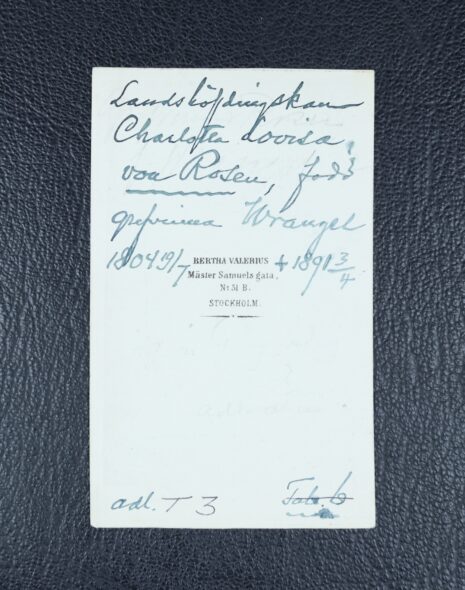 Landshöfdingskan
Charlotta Lovisa
von Rosen, född
grefvinna Wrangel
1804 19/7 + 1891 3/4
BERTHA VALERIUS
Mäster Samuels gata,
No 51 B.
STOCKHOLM.
adl. T 3
Tab. 6